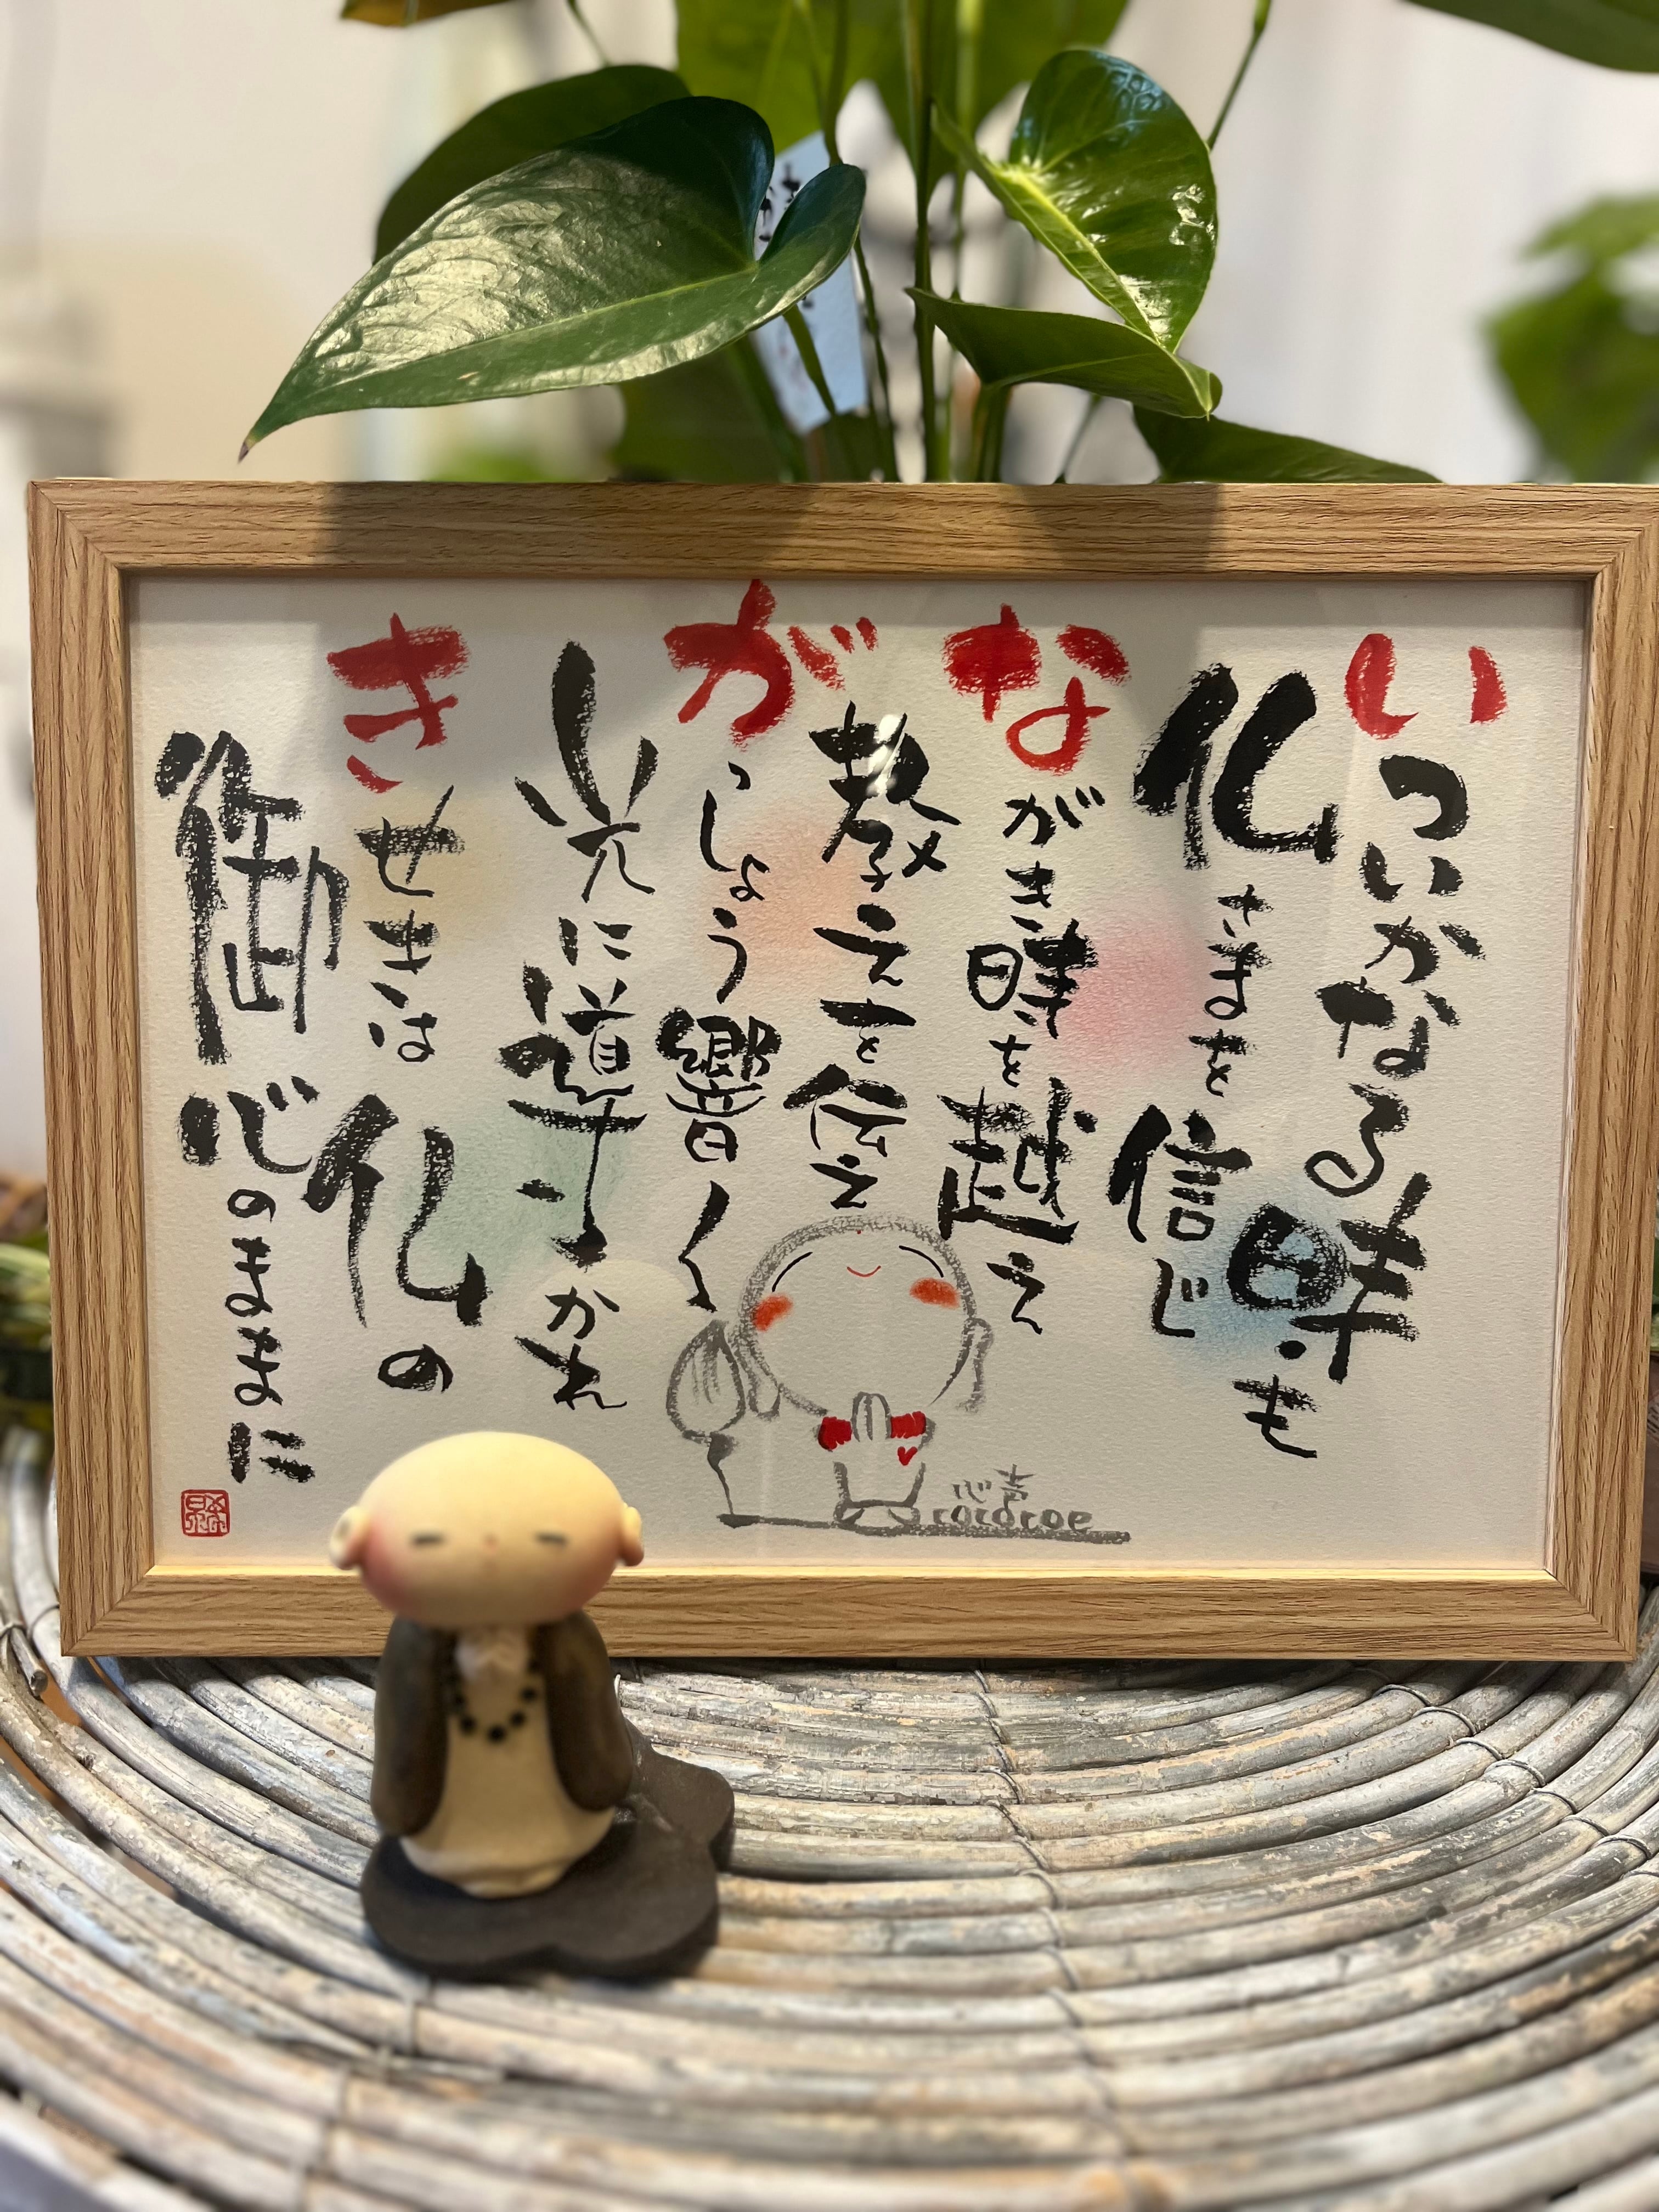 いついかなる時も
仏さまを信じ
ながき時を越え
教えを伝え
がっしょう響く
光に導かれ
きせきは仏の
御心のままに
心声
cocoroe